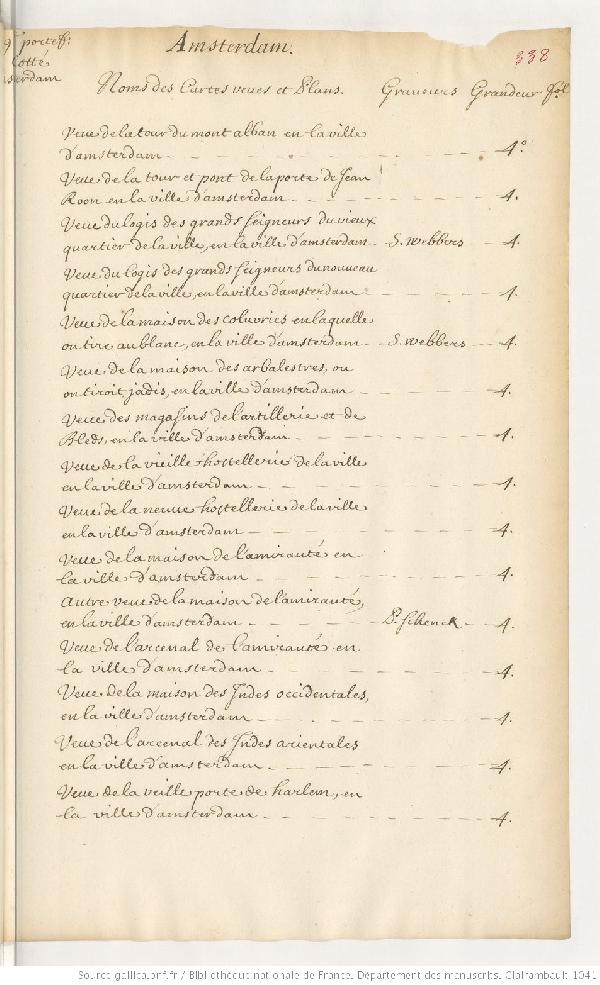 9.e portef:
Cotté
Amsterdam.
338
Noms des Cartes veues et Plans. Graveurs Grandeur fol
Veue de la tour du mont alban en la ville
d'amsterdam 4.o
Veue de la tour et pont de la porte de Jean
Roon en la ville d'amsterdam 4.
Veue du logis des grands seigneurs du vieux
quartier de la ville, en la ville d'amsterdam S. webbers 4.
Veue du logis des grands seigneurs du nouveau
quartier de la ville, en la ville d'amsterdam 4.
Veue de la maison des coluvries en laquelle
on tire au blanc, en la ville d'amsterdam S. webbers 4.
Veue de la maison des arbalestres, ou
on tiroit jadis, en la ville d'amsterdam 4.
Veue des magasins de l'artillerie et de
Bleds, en la ville d'amsterdam 4.
Veue de la vieille hostellerie de la ville
en la ville d'amsterdam 4.
Veue de la neuue hostellerie de la ville
en la ville d'amsterdam 4.
Veue de la maison de l'amirauté en
la ville d'amsterdam 4.
autre veue de la maison de l'amirauté,
en la ville d'amsterdam P. schenck 4.
Veue de l'arcenal de l'amirauté en
la ville d'amsterdam 4.
Veue de la maison des Indes occidentales,
en la ville d'amsterdam 4.
Veue de l'arcenal des Indes orientales
en la ville d'amsterdam 4.
Veue de la veille porte de harlem, en
la ville d'amsterdam 4.
Source gallica.bnf.fr / Bibliothèque nationale de France. Département des manuscrits. Clairambault 1041